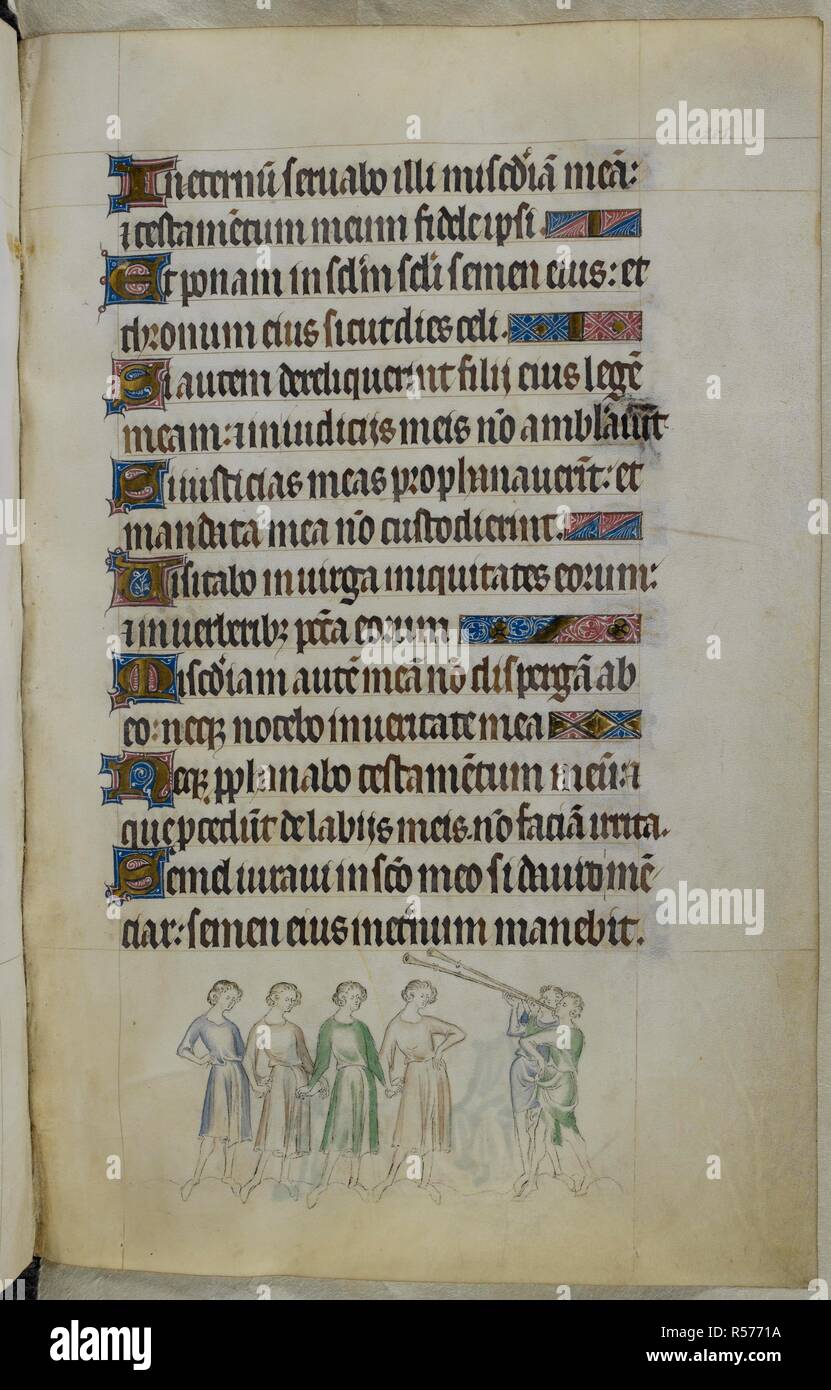 In eternū seruabo illi miscd'iā meā:
⁊ testamētum meum fidele ipsi.
Et ponam in sclm̄ scli semen eius: et
thronum eius sicut dies celi.
Si autem dereliquerint filij eius legē
meam: ⁊ in iudicijs meis nō amblauūt
Si iusticias meas prophanauerīt: et
mandata mea nō custodierint.
Uisitabo in uirga iniquitates eorum:
⁊ in uerberibꝫ pctā eorum
Miscd'iam autē meā nō dispergā ab
eo: neqꝫ nocebo in ueritate mea
Neqꝫ pphanabo testamētum meū: ⁊
que pcedūt de labijs meis. nō faciā irrita.
Semel iuraui in scō meo si dauid mē
ciar: semen eius in et'num manebit.
alamy
alamy
Image ID: R5771A
www.alamy.com